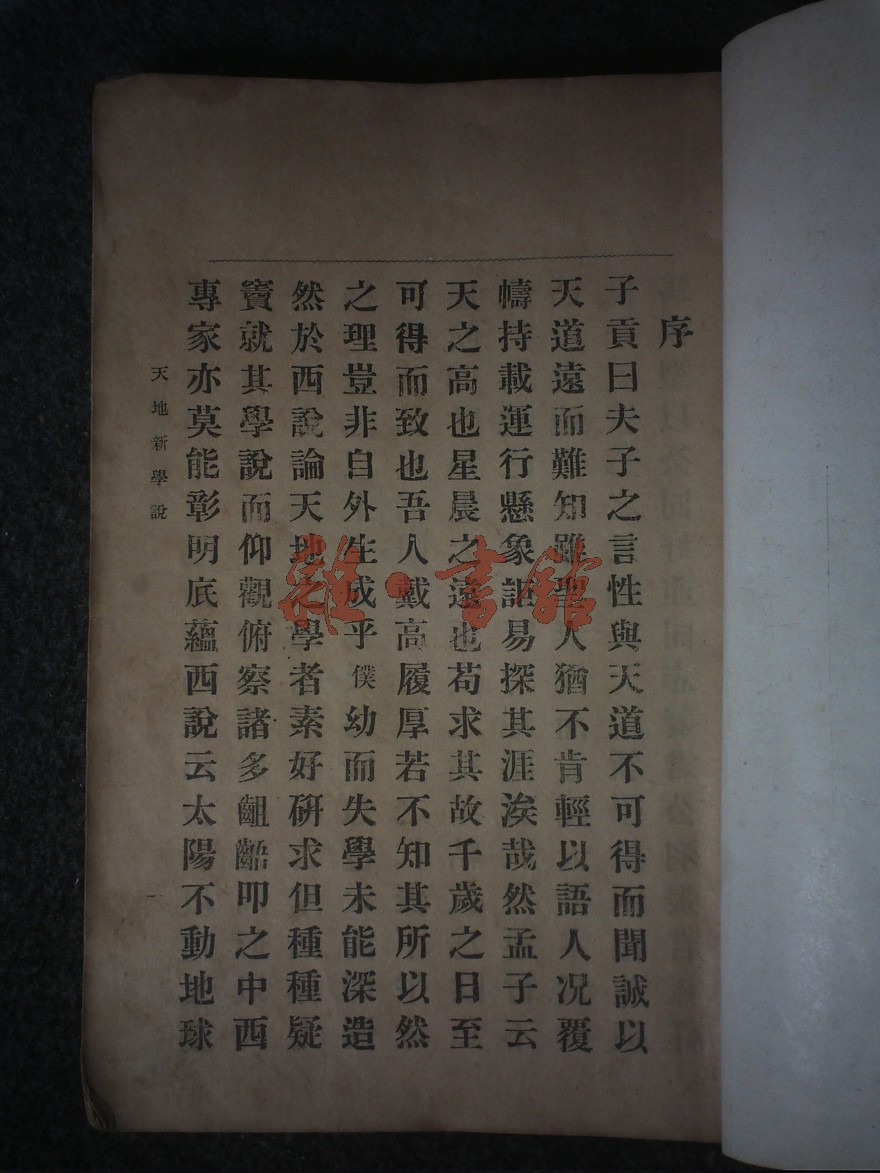 序
子貢曰夫子之言性與天道不可得而聞誠以
天道遠而難知雖聖人猶不肯輕以語人况覆
幬持載運行懸象詎易探其涯涘哉然孟子云
天之高也星晨之遠也苟求其故千歲之日至
可得而致也吾人戴高履厚若不知其所以然
之理豈非自外生成乎僕幼而失學未能深造
然於西說論天地之學者素好硏求但種種疑
竇就其學說而仰觀俯察諸多齟齬叩之中西
專家亦莫能彰明底蘊西說云太陽不動地球
天地新學說
一
雜·書館